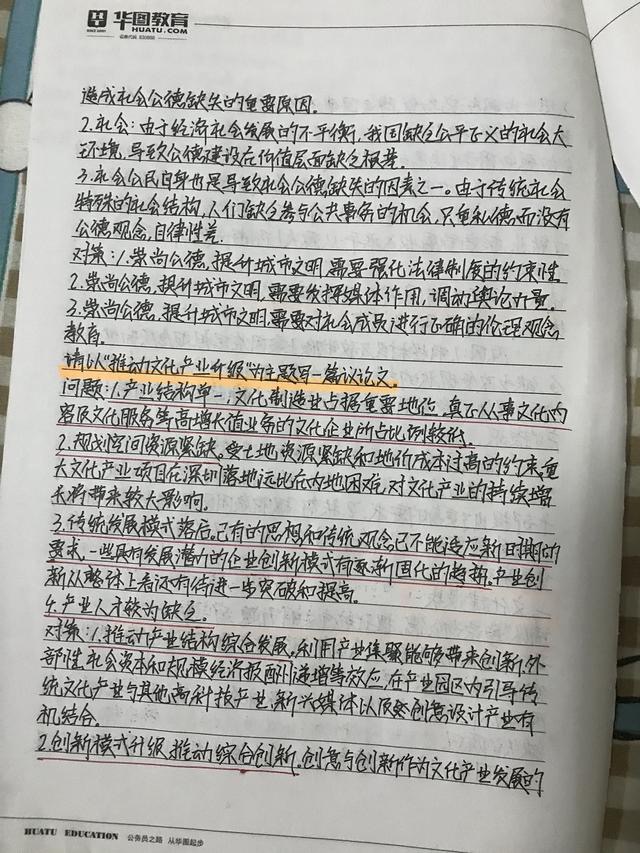 华图教育
HUATU.COM
造成社会公德缺失的重要原因。
2.社会:由于经济社会发展的不平衡,我国缺乏公平正义的社会大
环境,导致公德建设在价值层面缺乏根基。
3.社会公民自身也是导致社会公德缺失的因素之一。由于传统社会
特殊的社会结构,人们缺乏参与公共事务的机会,只重私德而没有
公德观念,自律性差.
对策:1.崇尚公德,提升城市文明,需要强化法律制度的约束性
2.崇尚公德,提升城市文明,需要发挥媒体作用,调动舆论力量.
3.崇尚公德,提升城市文明,需要对社会成员进行正确的伦理观念
教育.
请以"推动文化产业升级"为主题写一篇议论文。
问题:1.产业结构单一,文化制造业占据重要地位,真正从事文化内
容及文化服务等高增长值业务的文化企业所占比例较低.
2.规划空间资源紧缺,受土地资源紧缺和地价成本过高的约束,重
大文化产业项目在深圳落地远比在内地困难,对文化产业的持续增
长将带来较大影响.
3.传统发展模式落后,已有的思想和传统观念已不能适应新时期的
要求,一些具有发展潜力的企业创新模式有逐渐固化的趋势,产业创
新从整体上看还有待进一步突破和提高.
4.产业人才较为缺乏.
对策:1.推动产业结构综合发展,利用产业集聚能够带来创新,外
部性,社会资本和规模经济报酬递增等效应,在产业园区内引导传
统文化产业与其他高科技产业,新兴媒体以及创意设计产业有
机结合.
2.创新模式升级,推动综合创新.创意与创新作为文化产业发展的
HUATU EDUCATION 公务员之路 从华图起步